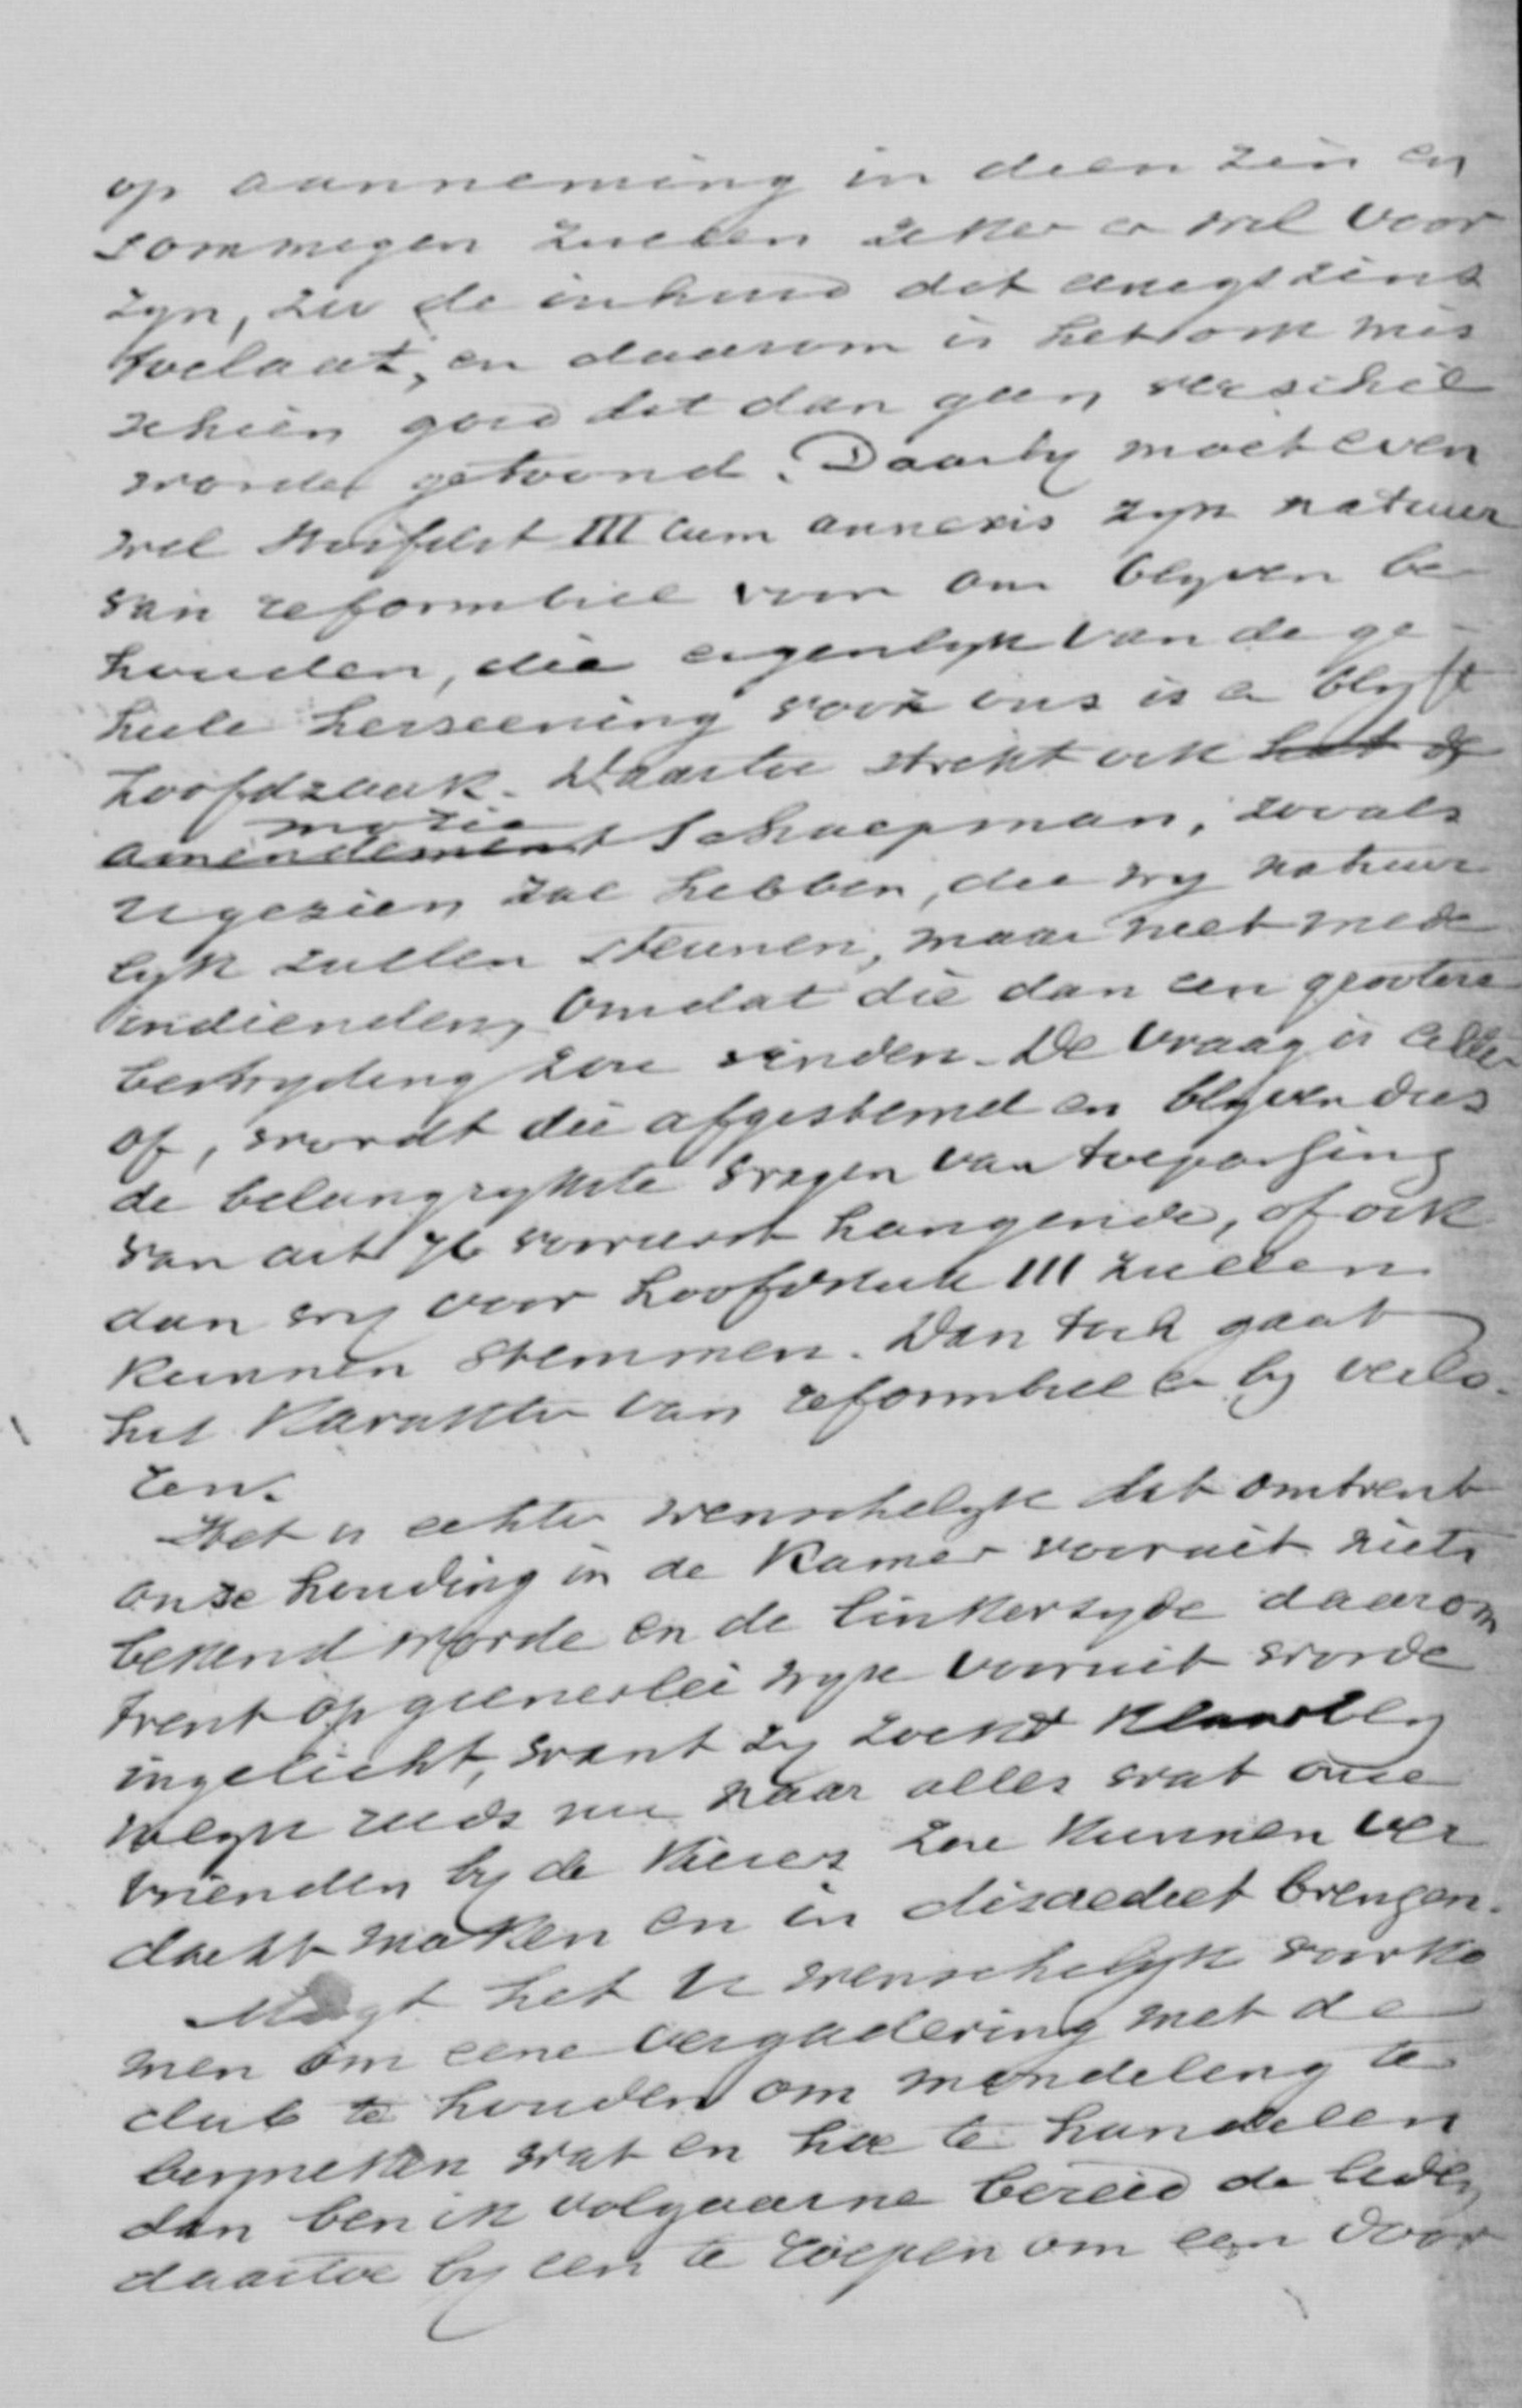 op aanneming in dien zin en
sommigen zullen zeker er wel voor
zyn, zoo de inhoud dat enigszins
toelaat, en daarom is het ook mis
schien goed dat dan geen verschil
worde getoond. Daarby moet even
wel Hoofdst III cum annexis zyn natuur
van reformbill voor ons blyven be
houden, die eigenlyk van de ge-
heele herziening voor ons is en blyft
hoofdzaak. Daartoe strekt ook het de
motie
amendement Schaepman, zooals
U gezien zal hebben, die wy natuur
lyk zullen steunen, maar niet mede
indienden, omdat die dan een grootere
bestryding zou vinden. De vraag is allen
of, wordt die afgestemd en blyven dus
de belangrykste vragen van toepassing
van art 76 voorwerk hangende, of ook
dan wy voor hoofdstuk III zullen
kunnen stemmen. Dan toch gaat
het karakter van reformbill er by verlo-
ren.
Het is echter wenschelyk dat omtrent
onze houding in de Kamer vooruit niets
bekend worde en de linkerzyde daarom
trent op geenerlei wyze vooruit worde
ingelicht, want zy zoekt klaarbly
kelyk reeds nu naar alles wat onze
vrienden by de kiezers zou kunnen ver
dacht maken en in discrediet brengen.
Mogt het U wenschelyk voorko
men om eene vergadering met de
club te houden om mondeling te
bespreken wat en hoe te handelen
dan ben ik volgaarne bereid de leden
daartoe by een te roepen om een door